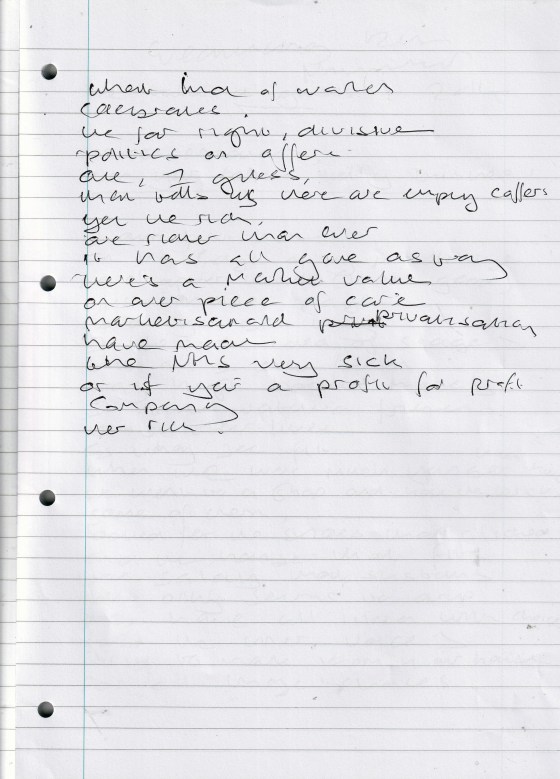 what kind of
celebrates.
the far right, divisive
politics on offer
are, I guess,
there are empty coffers
yet the rich,
are richer than ever
it has all gone
there's a market value
on over piece of care
and privatisation
have made
the NHS very sick
or if your a profit for profit
company
very rich.